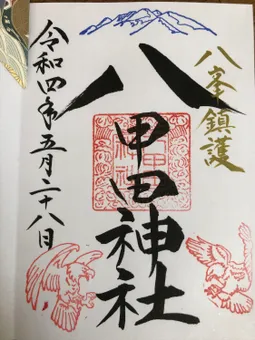 八峯鎮護
八甲田神社
令和四年五月二十八日